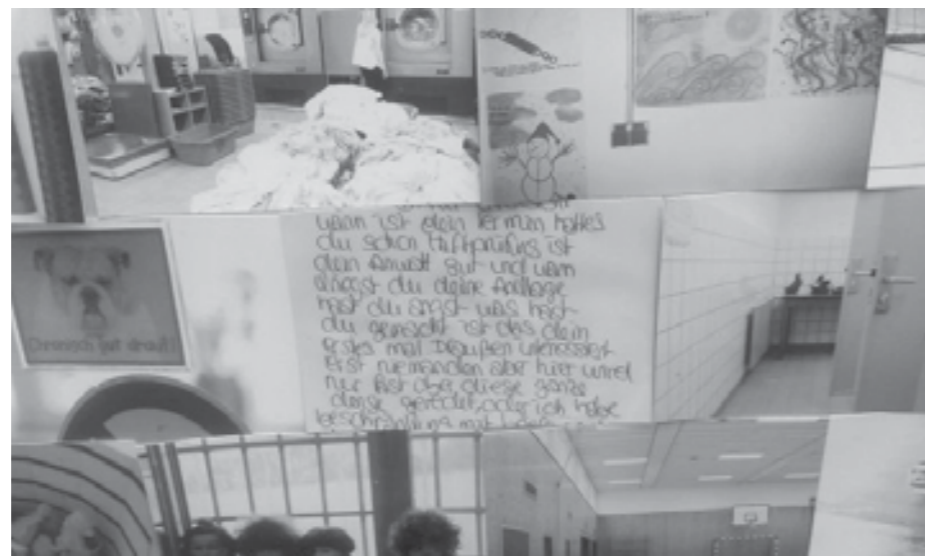 Chronisch gut drauf!
wann ist dein Termin hattes
du schon Haftprüfung ist
dein Anwalt gut und wann
du deine Anklage
hast du angst was hast
du gemacht ist das dein
erstes mal Draußen interessiert
Erst niemanden aber hier wird
nur fast über diese ganze
dinge geredet, oder ich habe
beschränkung mit